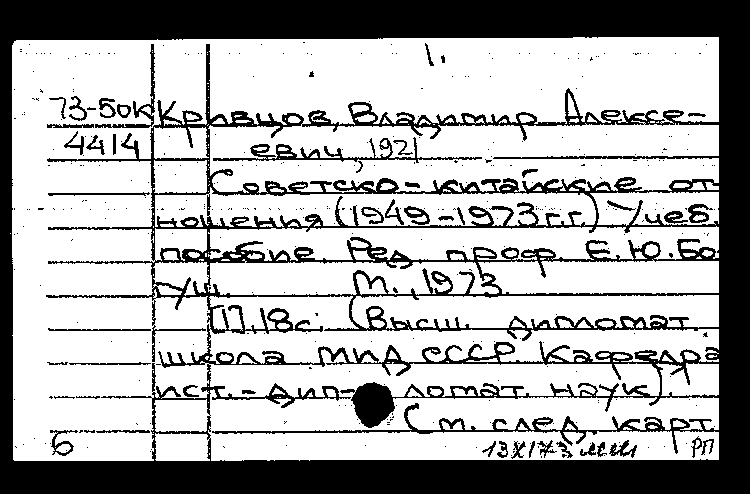 1.
73-50к Кривцов, Владимир Алексе-
4414 евич, 1921
Советско-китайские от-
ношения (1949-1973 г.г.) Учеб.
пособие. Ред. проф. Е.Ю.Бо-
гуш. М., 1973.
[1], 18с; (Высш. дипломат.
школа МИД СССР. Кафедра
ист.-дип- ломат. наук).
См. след. карт.
6 РП